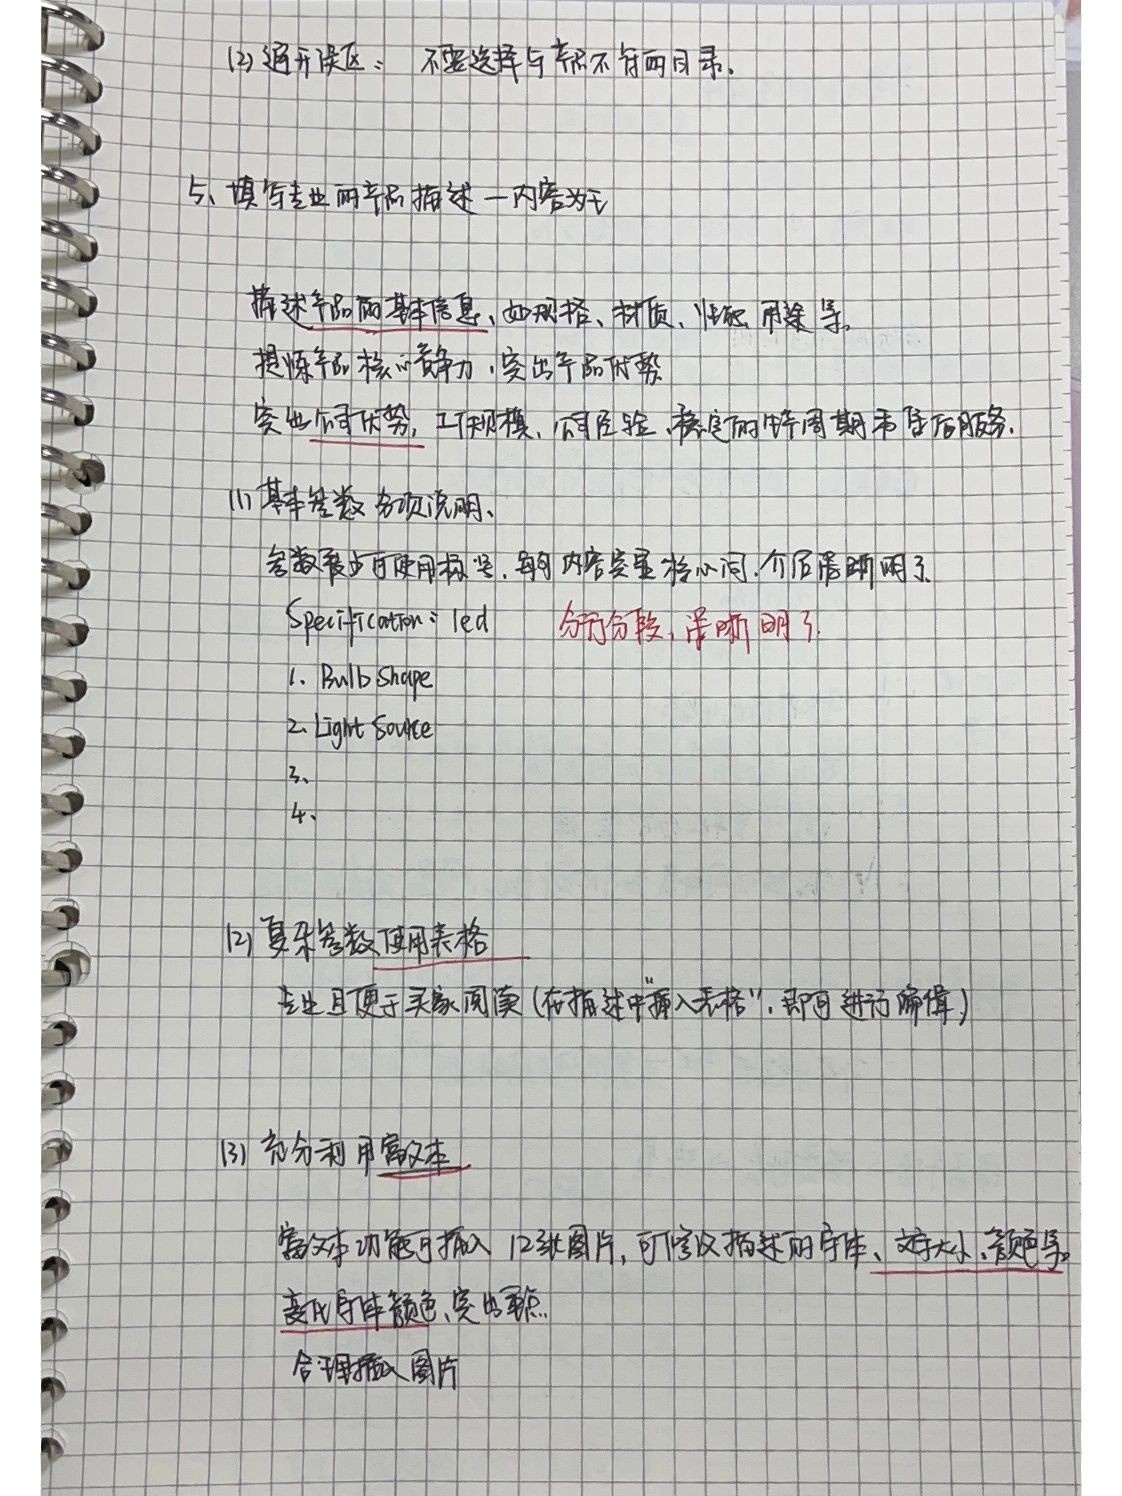 (2) 避开误区： 不要选择与产品不符的目录。
5、填写专业的产品描述—内容为王
描述产品的基本信息、如规格、材质、性能、用途等。
提炼产品核心竞争力，突出产品优势
突出公司优势，工厂规模、公司经验、稳定的生产周期和售后服务.
(1) 基本参数分项说明、
参数较少可使用标签，每句内容尽量核心词，介绍清晰明了.
Specification: led 分行分段，清晰明了.
1. Bulb Shape
2. Light Source
3、
4、
(2) 复杂参数使用表格
专业且便于买家阅读(在描述中“插入表格”，即可进行编辑)
(3) 充分利用富文本
富文本功能可插入12张图片，可修改描述的字体、文字大小、颜色等.
变化字体颜色、突出重点.
合理插入图片